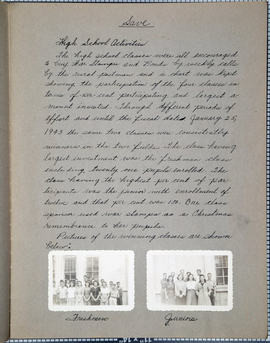 Save
High School Activities
The high school classes were all encouraged
to buy War Stamps and Bonds by weekly calls
by the rural postman and a chart was kept
showing the participation of the four classes in
terms of per-cent participating and largest a
mount invested. Through different periods of
effort and until the final date January 25,
1943 the same two classes were consistently
winners in the two fields. The class having
largest investment was the freshman class
including twenty one pupils enrolled. The
class having the highest per cent of par-
ticipants was the junior with enrollment of
twelve and that per cent was 100. One class
sponsor used war stamps as a Christmas
remembrance to her pupils.
Pictures of the winning classes are shown
below:
Freshmen
Juniors